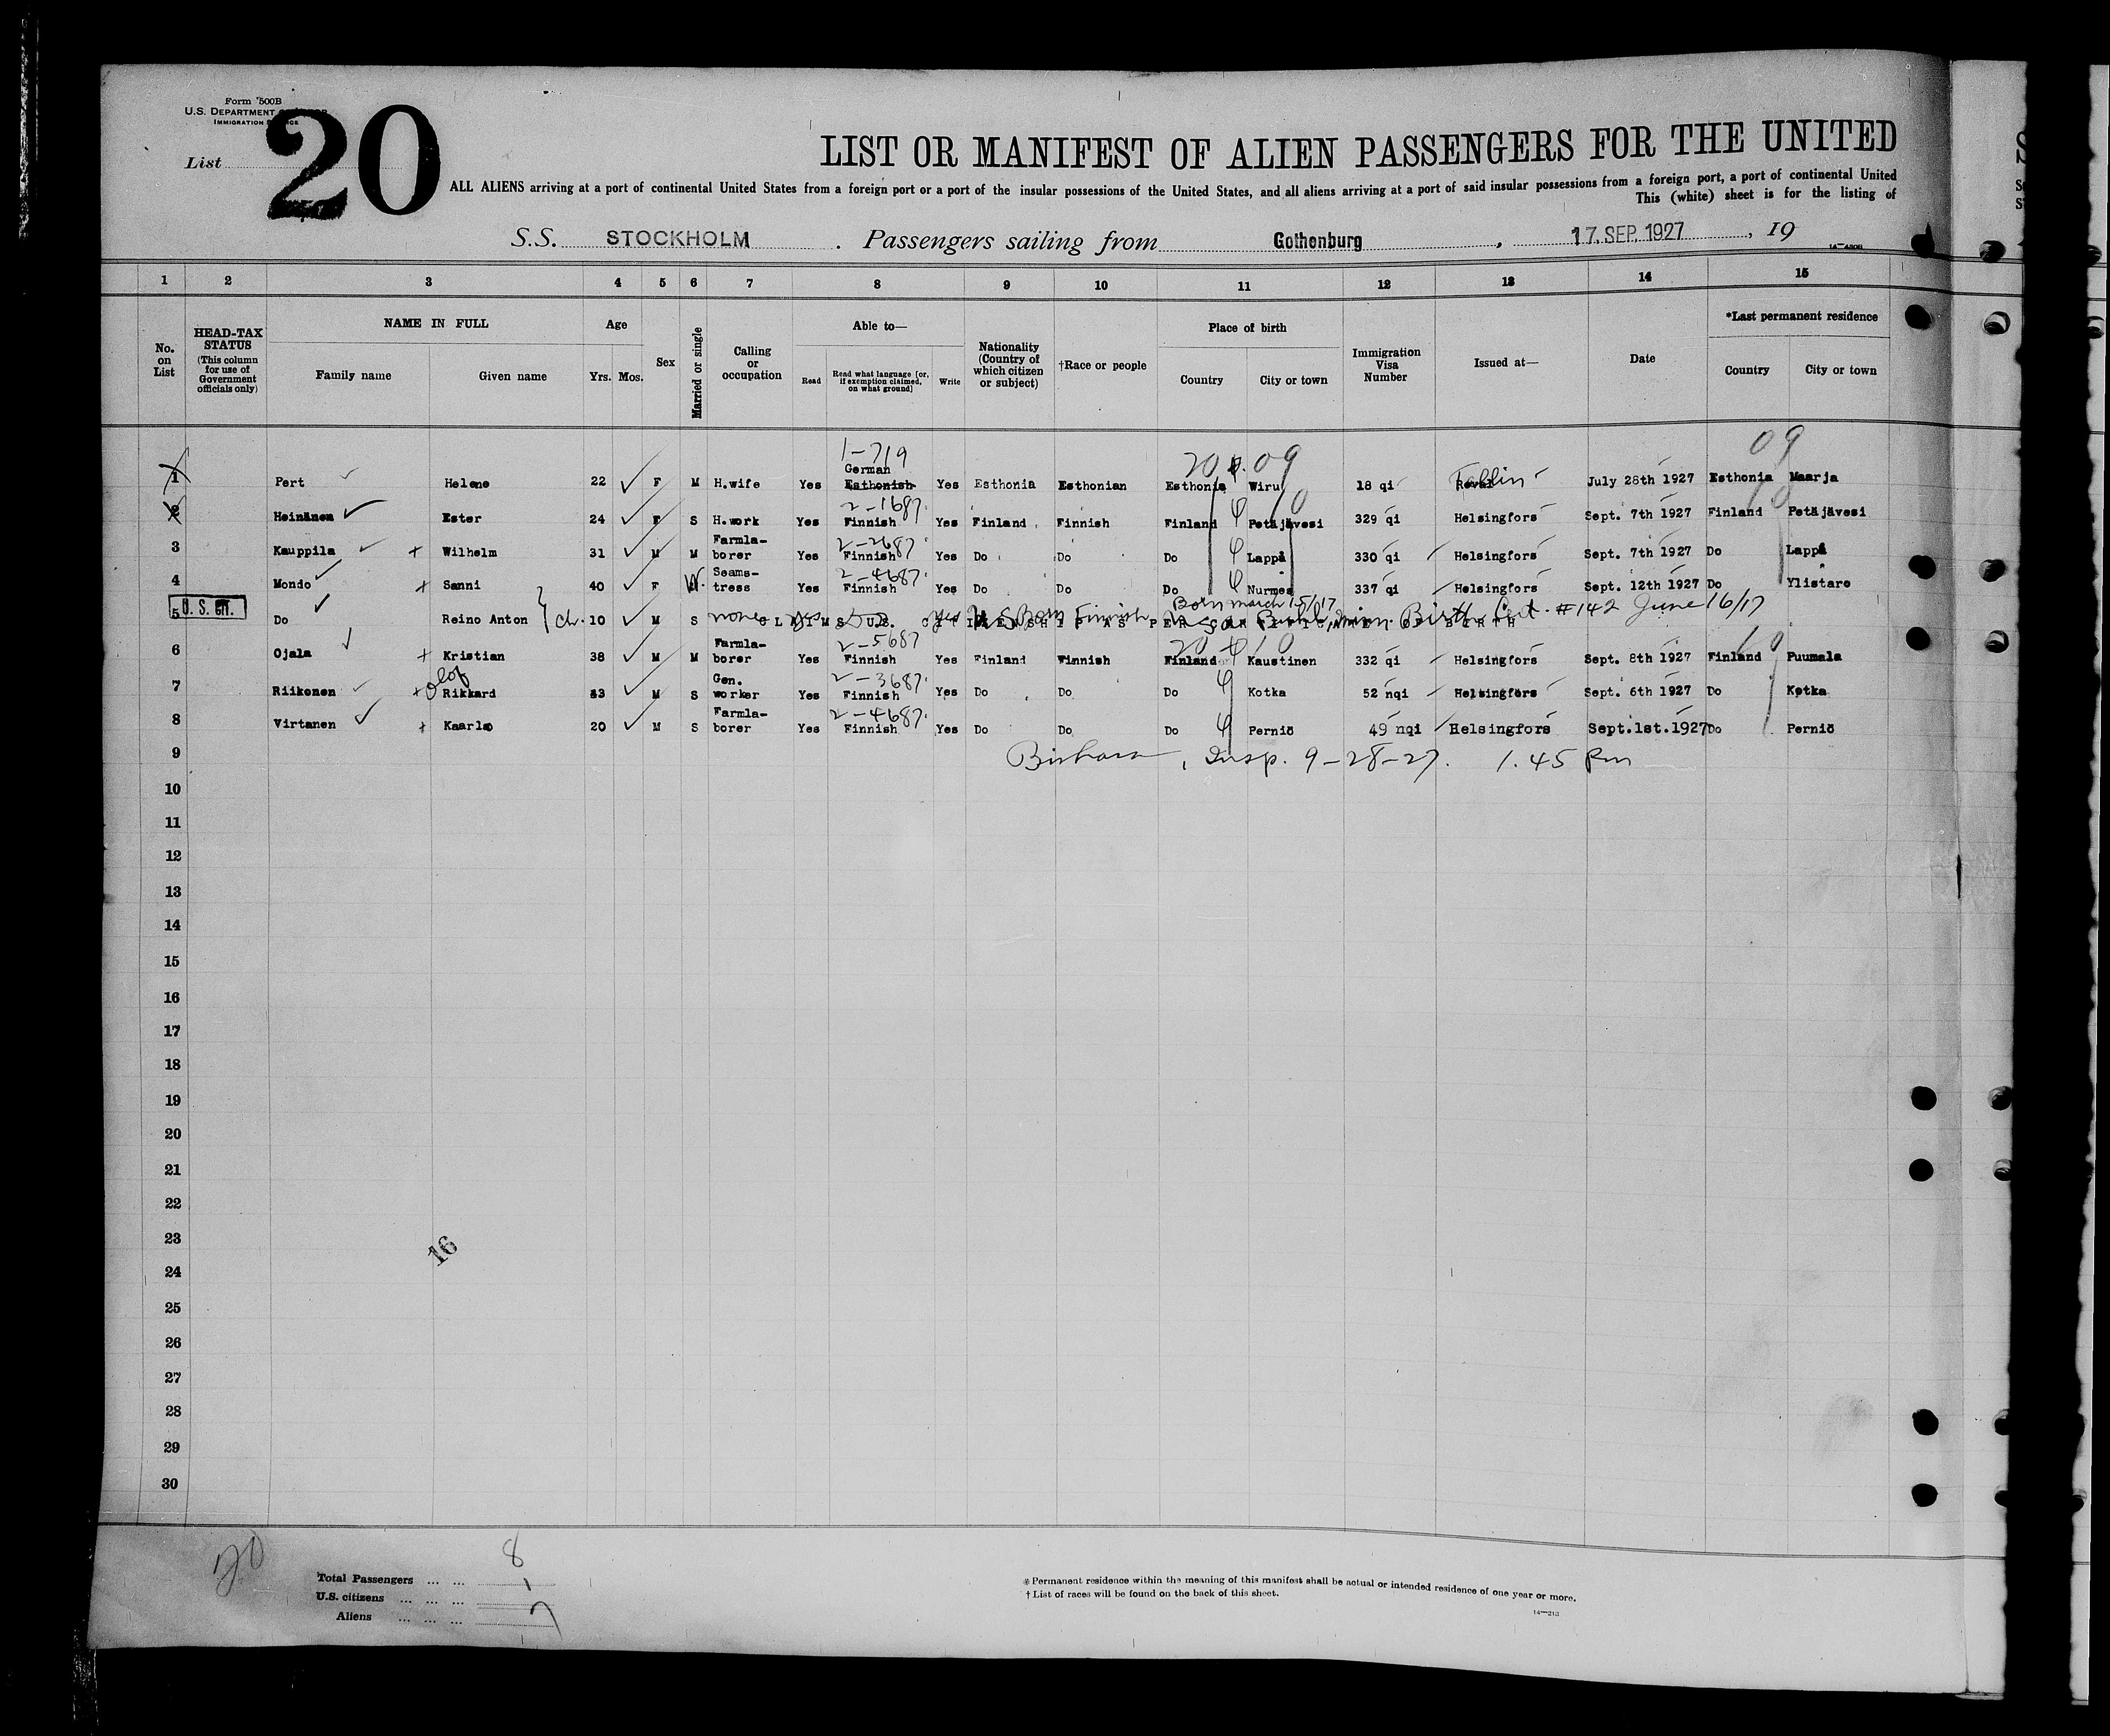 Form 500B
U.S. DEPARTMENT
IMMIGRATION
List 20
LIST OR MANIFEST OF ALIEN PASSENGERS FOR THE UNITED
ALL ALIENS arriving at a port of continental United States from a foreign port or a port of the insular possessions of the United States, and all aliens arriving at a port of said insular possessions from a foreign port, a port of continental United
This (white) sheet is for the listing of
S.S. STOCKHOLM. Passengers sailing from Gothenburg, 17. SEP. 1927, 19
1 2 3 4 5 6 7 8 9 10 11 12 13 14 15
No. on List
HEAD-TAX STATUS (This column for use of Government officials only)
NAME IN FULL
Family name
Given name
Age
Yrs. Mos.
Sex
Married or single
Calling or occupation
Able to—
Read
Read what language [or, if exemption claimed, on what ground]
Write
Nationality (Country of which citizen or subject)
†Race or people
Place of birth
Country
City or town
Immigration Visa Number
Issued at—
Date
*Last permanent residence
Country
City or town
1-719 20 09 09
1 Pert Helene 22 F M H.wife Yes German Esthonish Yes Esthonia Esthonian Esthonia Wiru 18 qi Reval Tallin July 28th 1927 Esthonia Maarja
2-1687. 10 10
2 Heinänen Ester 24 F S H.work Yes Finnish Yes Finland Finnish Finland Petäjävesi 329 qi Helsingfors Sept. 7th 1927 Finland Petäjävesi
2-2687.
3 Kauppila + Wilhelm 31 M M Farmla-borer Yes Finnish Yes Do Do Do Lappä 330 qi Helsingfors Sept. 7th 1927 Do Lappä
2-4687.
4 Mondo + Sanni 40 F W. Seams-tress Yes Finnish Yes Do Do Do Nurmes 337 qi Helsingfors Sept. 12th 1927 Do Ylistaro
Born March 15/17
U. S. CIT.
5 Do Reino Anton ch. 10 M S none yes yes U.S. Born Finnish Birth Cert. #142 June 16/17
CLAIMS U.S. CITIZENSHIP AS PER CERTIFICATE OF BIRTH
2-5687 20 10 10
6 Ojala + Kristian 38 M M Farmla-borer Yes Finnish Yes Finland Finnish Finland Kaustinen 332 qi Helsingfors Sept. 8th 1927 Finland Puumala
2-3687.
7 Riikonen + Olof Rikkard 43 M S Gen. worker Yes Finnish Yes Do Do Do Kotka 52 nqi Helsingfors Sept. 6th 1927 Do Kotka
2-4687.
8 Virtanen + Kaarlo 20 M S Farmla-borer Yes Finnish Yes Do Do Do Perniö 49 nqi Helsingfors Sept.1st.1927 Do Perniö
9 Insp. 9-28-27. 1.45 Pm
10
11
12
13
14
15
16
17
18
19
20
21
22
23
16
24
25
26
27
28
29
30
20
Total Passengers ... ... 8
U.S. citizens ... ... ... 1
Aliens ... ... ... 7
*Permanent residence within the meaning of this manifest shall be actual or intended residence of one year or more.
†List of races will be found on the back of this sheet.
14—213